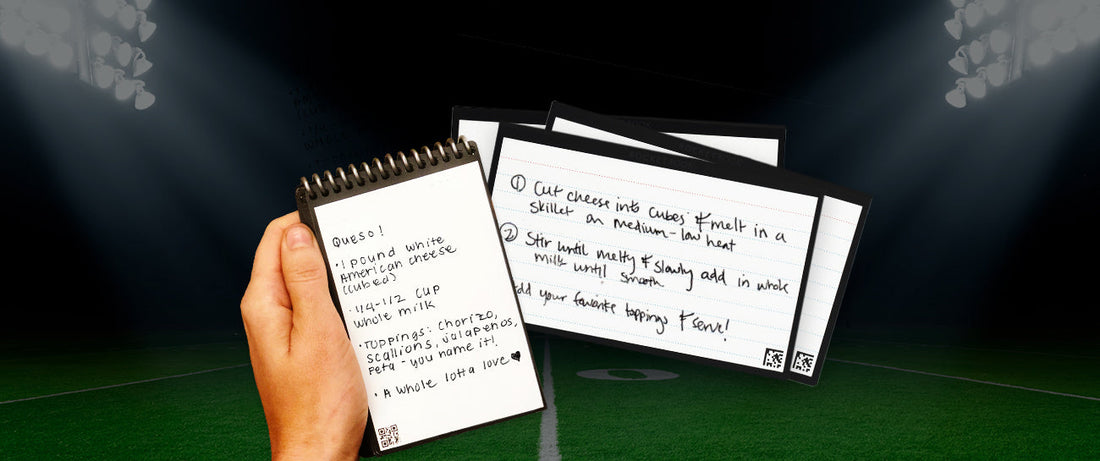 QUESO!
• 1 pound white
American cheese
(cubed)
• 1/4-1/2 cup
whole milk
• Toppings: Chorizo,
scallions, jalapeños,
Feta - you name it!
• A whole lotta love ♥
① Cut cheese into cubes & melt in a
skillet on medium-low heat
② Stir until melty & slowly add in whole
milk until smooth
dd your favorite toppings & serve!